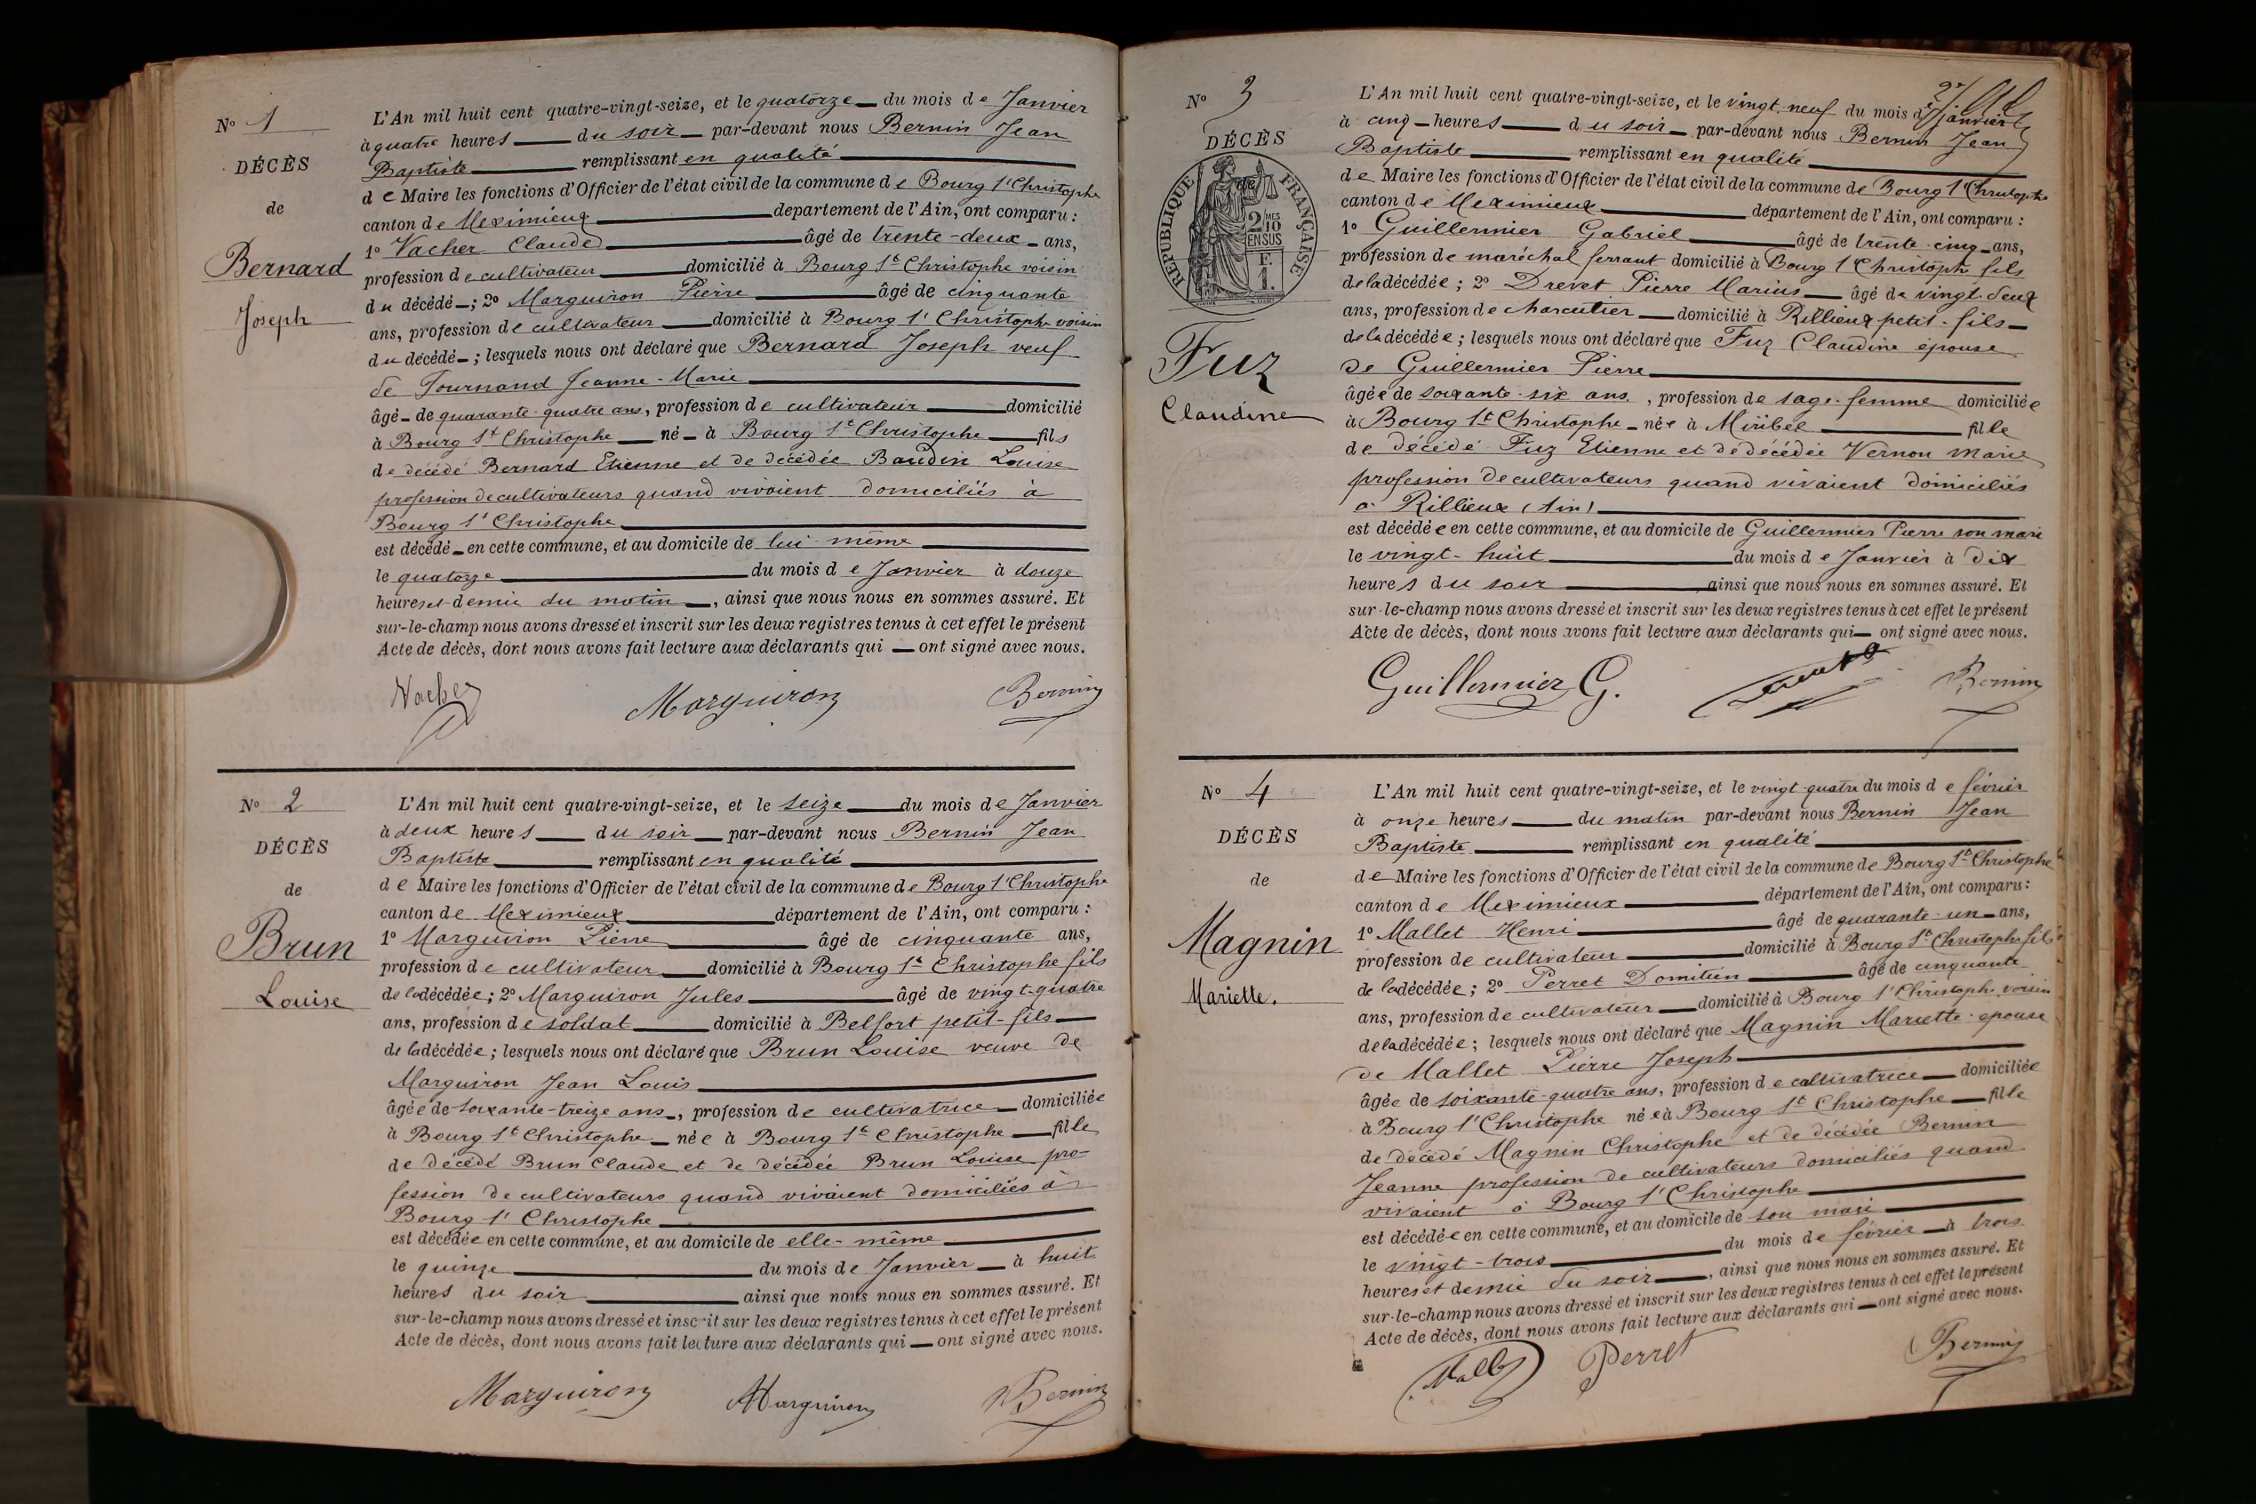 N° 1
DÉCÈS
de
Bernard
Joseph
L'An mil huit cent quatre-vingt-seize, et le quatorze du mois de Janvier
à quatre heures du soir par-devant nous Bernin Jean
Baptiste remplissant en qualité
de Maire les fonctions d'Officier de l'état civil de la commune de Bourg St Christophe
canton de Meximieux département de l'Ain, ont comparu :
1° Vacher Claude âgé de trente-deux ans,
profession de cultivateur domicilié à Bourg St Christophe voisin
du décédé ; 2° Marguiron Pierre âgé de cinquante
ans, profession de cultivateur domicilié à Bourg St Christophe voisin
du décédé ; lesquels nous ont déclaré que Bernard Joseph veuf
de Tournand Jeanne-Marie
âgé de quarante-quatre ans, profession de cultivateur domicilié
à Bourg St Christophe né à Bourg St Christophe fils
de décédé Bernard Etienne et de décédée Baudin Louise
profession de cultivateurs quand vivaient domiciliés à
Bourg St Christophe
est décédé en cette commune, et au domicile de lui-même
le quatorze du mois de Janvier à douze
heures et demie du matin, ainsi que nous nous en sommes assuré. Et
sur-le-champ nous avons dressé et inscrit sur les deux registres tenus à cet effet le présent
Acte de décès, dont nous avons fait lecture aux déclarants qui ont signé avec nous.
Vacher Marguiron Bernin
N° 2
DÉCÈS
de
Brun
Louise
L'An mil huit cent quatre-vingt-seize, et le seize du mois de Janvier
à deux heures du soir par-devant nous Bernin Jean
Baptiste remplissant en qualité
de Maire les fonctions d'Officier de l'état civil de la commune de Bourg St Christophe
canton de Meximieux département de l'Ain, ont comparu :
1° Marguiron Pierre âgé de cinquante ans,
profession de cultivateur domicilié à Bourg St Christophe fils
de la décédée ; 2° Marguiron Jules âgé de vingt-quatre
ans, profession de soldat domicilié à Belfort petit-fils
de la décédée ; lesquels nous ont déclaré que Brun Louise veuve de
Marguiron Jean Louis
âgée de soixante-treize ans, profession de cultivatrice domiciliée
à Bourg St Christophe née à Bourg St Christophe fille
de décédé Brun Claude et de décédée Brun Louise pro-
fession de cultivateurs quand vivaient domiciliés à
Bourg St Christophe
est décédée en cette commune, et au domicile de elle-même
le quinze du mois de Janvier à huit
heures du soir ainsi que nous nous en sommes assuré. Et
sur-le-champ nous avons dressé et inscrit sur les deux registres tenus à cet effet le présent
Acte de décès, dont nous avons fait lecture aux déclarants qui ont signé avec nous.
Marguiron Marguiron Bernin
N° 3
DÉCÈS
de
RÉPUBLIQUE FRANÇAISE
2/10
EN SUS
F.
1.
Fuz
Claudine
L'An mil huit cent quatre-vingt-seize, et le vingt-neuf du mois de janvier
à cinq heures du soir par-devant nous Bernin Jean
Baptiste remplissant en qualité
de Maire les fonctions d'Officier de l'état civil de la commune de Bourg St Christophe
canton de Meximieux département de l'Ain, ont comparu :
1° Guillermier Gabriel âgé de trente-cinq ans,
profession de maréchal ferrant domicilié à Bourg St Christophe fils
de la décédée ; 2° Drevet Pierre Marius âgé de vingt-deux
ans, profession de charcutier domicilié à Rillieux petit-fils
de la décédée ; lesquels nous ont déclaré que Fuz Claudine épouse
de Guillermier Pierre
âgée de soixante-six ans, profession de sage-femme domiciliée
à Bourg St Christophe née à Miribel fille
de décédé Fuz Etienne et de décédée Vernon Marie
profession de cultivateurs quand vivaient domiciliés
à Rillieux (Ain)
est décédée en cette commune, et au domicile de Guillermier Pierre son mari
le vingt-huit du mois de Janvier à dix
heures du soir ainsi que nous nous en sommes assuré. Et
sur-le-champ nous avons dressé et inscrit sur les deux registres tenus à cet effet le présent
Acte de décès, dont nous avons fait lecture aux déclarants qui ont signé avec nous.
Guillermier G. Bernin
N° 4
DÉCÈS
de
Magnin
Mariette.
L'An mil huit cent quatre-vingt-seize, et le vingt-quatre du mois de février
à onze heures du matin par-devant nous Bernin Jean
Baptiste remplissant en qualité
de Maire les fonctions d'Officier de l'état civil de la commune de Bourg St Christophe
canton de Meximieux département de l'Ain, ont comparu :
1° Mallet Henri âgé de quarante-un ans,
profession de cultivateur domicilié à Bourg St Christophe fils
de la décédée ; 2° Perret Domitien âgé de cinquante
ans, profession de cultivateur domicilié à Bourg St Christophe voisin
de la décédée ; lesquels nous ont déclaré que Magnin Mariette épouse
de Mallet Pierre Joseph
âgée de soixante-quatre ans, profession de cultivatrice domiciliée
à Bourg St Christophe née à Bourg St Christophe fille
de décédé Magnin Christophe et de décédée Bernin
Jeanne profession de cultivateurs domiciliés quand
vivaient à Bourg St Christophe
est décédée en cette commune, et au domicile de son mari
le vingt-trois du mois de février à trois
heures et demie du soir, ainsi que nous nous en sommes assuré. Et
sur-le-champ nous avons dressé et inscrit sur les deux registres tenus à cet effet le présent
Acte de décès, dont nous avons fait lecture aux déclarants qui ont signé avec nous.
Mallet Perret Bernin